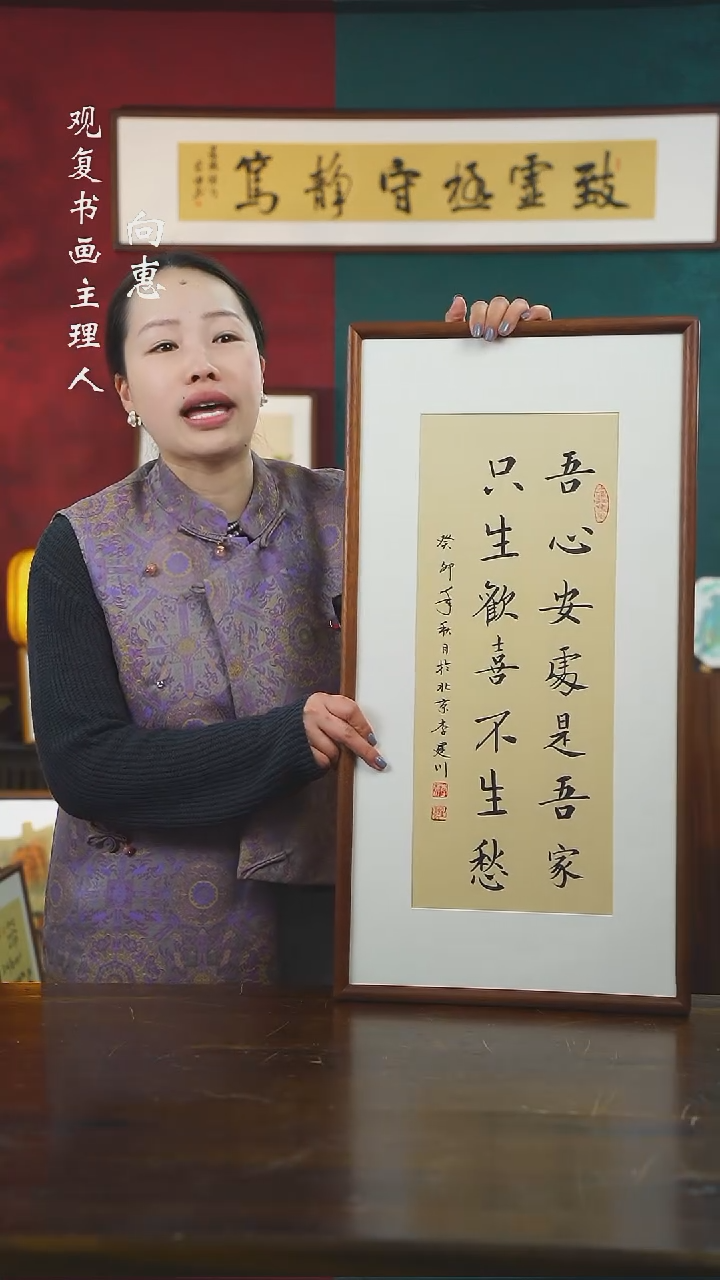 观复书画主理人
向惠
致虚极守静笃
吾心安處是吾家
只生歡喜不生愁
癸卯年秋月於北京李建川